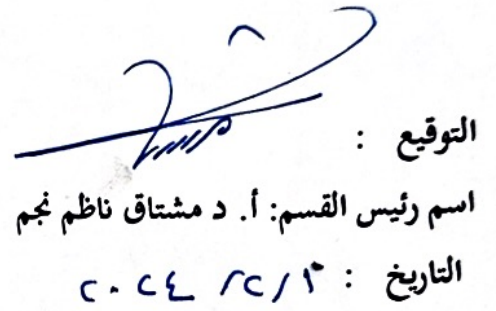 التوقيع :
اسم رئيس القسم: أ. د مشتاق ناظم نجم
التاريخ : ٢٠٢٤